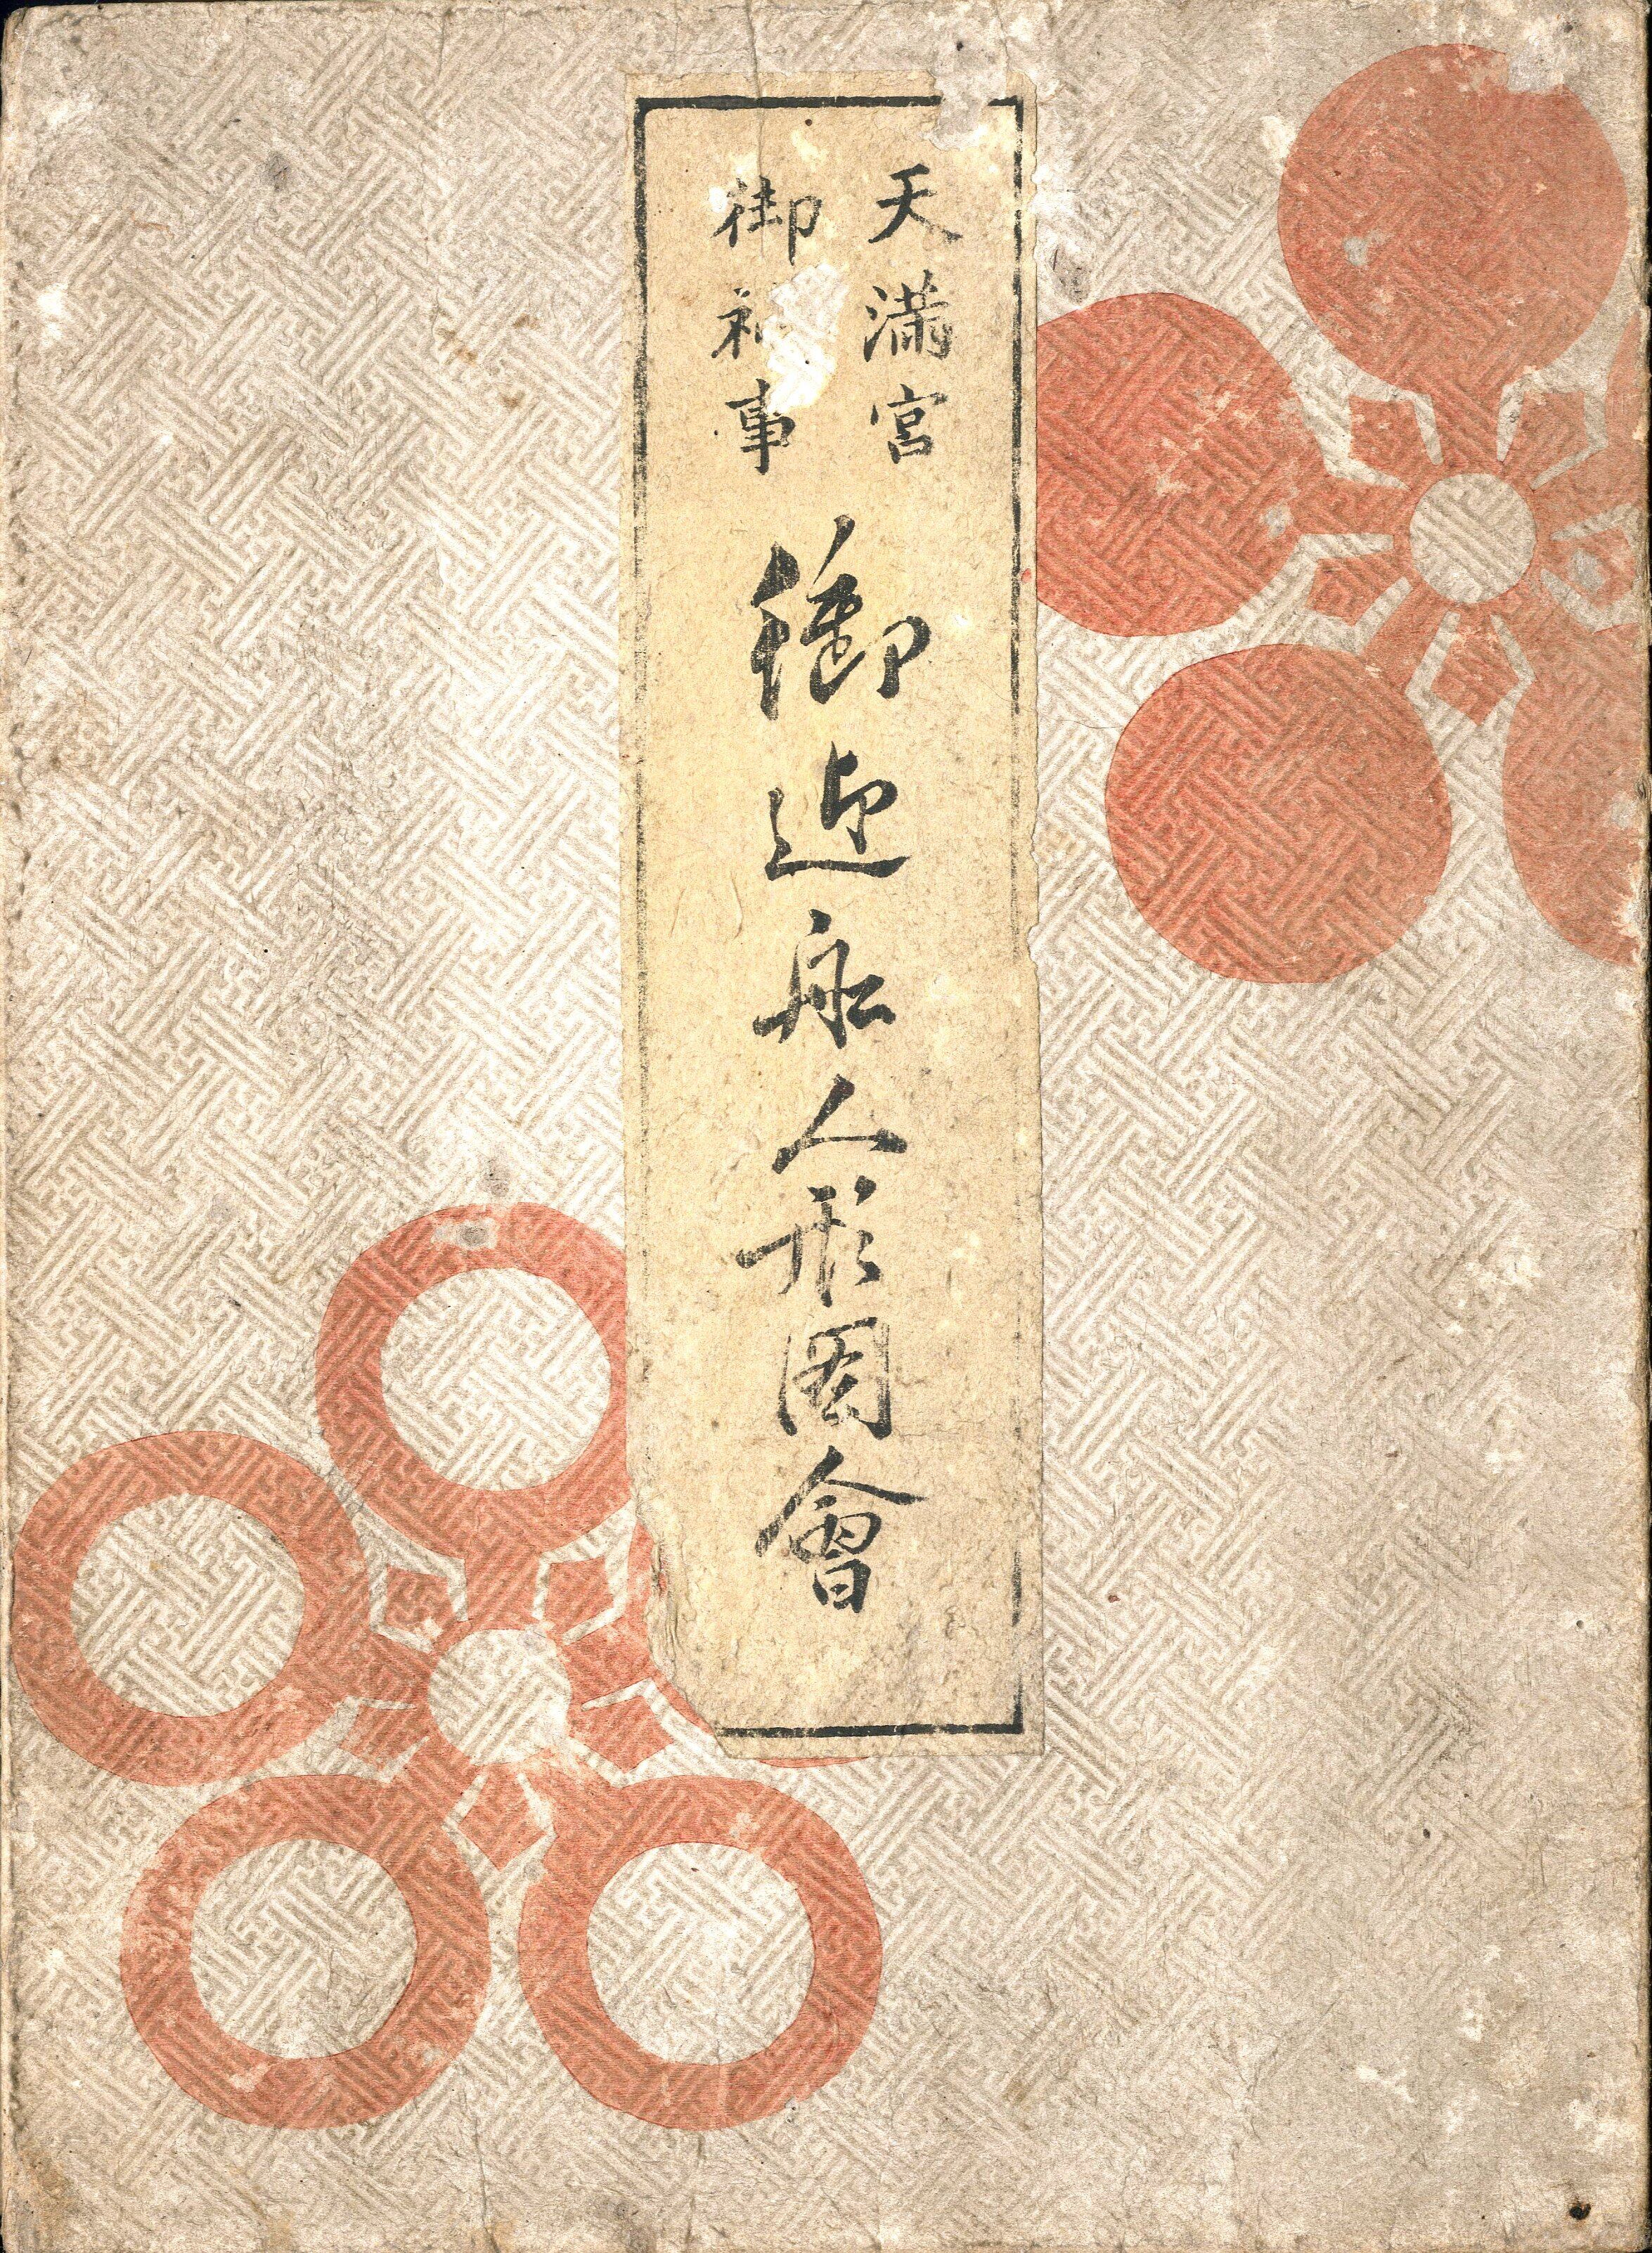 天満宮
御神事
御迎舩人形圖會